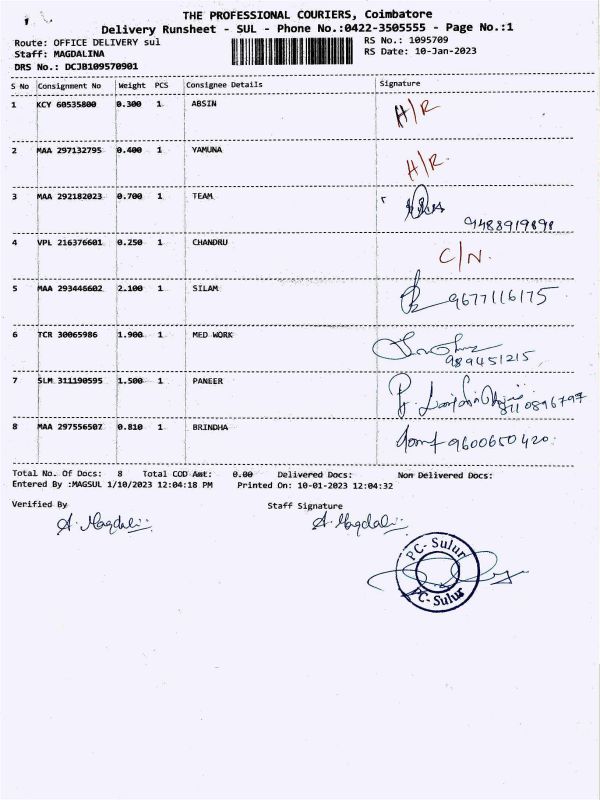 THE PROFESSIONAL COURIERS, Coimbatore
Delivery Runsheet - SUL - Phone No.:0422-3505555 - Page No.:1
Route: OFFICE DELIVERY sul RS No.: 1095709
Staff: MAGDALINA RS Date: 10-Jan-2023
DRS No.: DCJB109570901
S No Consignment No Weight PCS Consignee Details Signature
1 KCY 60535800 0.300 1 ABSIN H/R
2 MAA 297132795 0.400 1 YAMUNA H/R.
3 MAA 292182023 0.700 1 TEAM
9488919898
4 VPL 216376601 0.250 1 CHANDRU C/N.
5 MAA 293446602 2.100 1 SILAM 9677116175
6 TCR 30065986 1.900 1 MED WORK
989451215
7 SLM 311190595 1.500 1 PANEER
8110896797
8 MAA 297556507 0.810 1 BRINDHA 9600650420.
Total No. Of Docs: 8 Total COD Amt: 0.00 Delivered Docs: Non Delivered Docs:
Entered By :MAGSUL 1/10/2023 12:04:18 PM Printed On: 10-01-2023 12:04:32
Verified By Staff Signature
A. Magdali A. Magdali
PC- Sulur
PC- Sulur